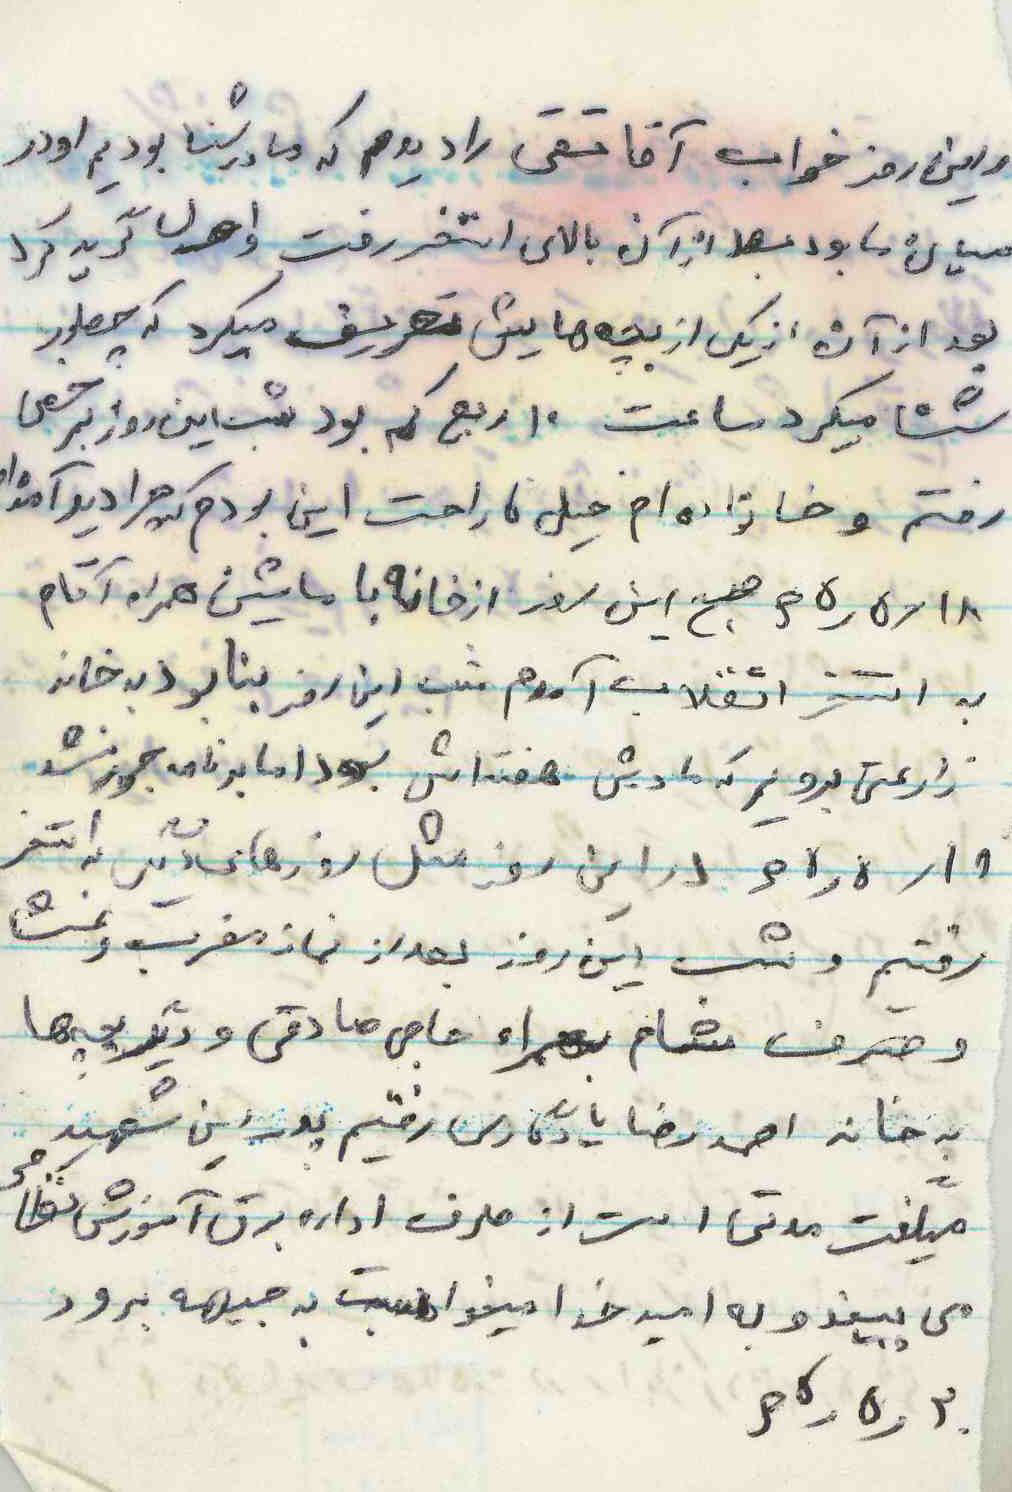 در این روز خواب آقا تقی را دیدم که ما در شنا بودیم او در
میان ما بود بعد از آن بالای استخر رفت و اول گریه کرد
بعد از آن از یکی از بچه هایش تعریف میکرد که چطور
شنا میکرد ساعت ۱۰ ربع کم بود شب این روز بمرخصی
رفتم و خانواده ام خیلی ناراحت این بودم که چرا دیر آمده ام
۱۸ ر ۵ ر ۶۵ صبح این روز از خانه با ماشین همراه آقام
به استخر انقلاب آمدم شب این روز بنا بود به خانه
زارعی برویم که مادرش هفته اش بود اما برنامه جور نشد
۱۹ ر ۵ ر ۶۵ در این روز مثل روزهای دیگر به استخر
رفتیم و شب این روز بعد از نماز مغرب و عشا
و صرف شام بهمراه حاجی صادقی و دیگر بچها
به خانه احمدرضا یادگاری رفتیم پدر این شهید
میگفت مدتی است از طرف اداره برق آموزش نظامی
می بیند و به امید خدا میخواهد به جبهه برود
۲۰ ر ۵ ر ۶۵